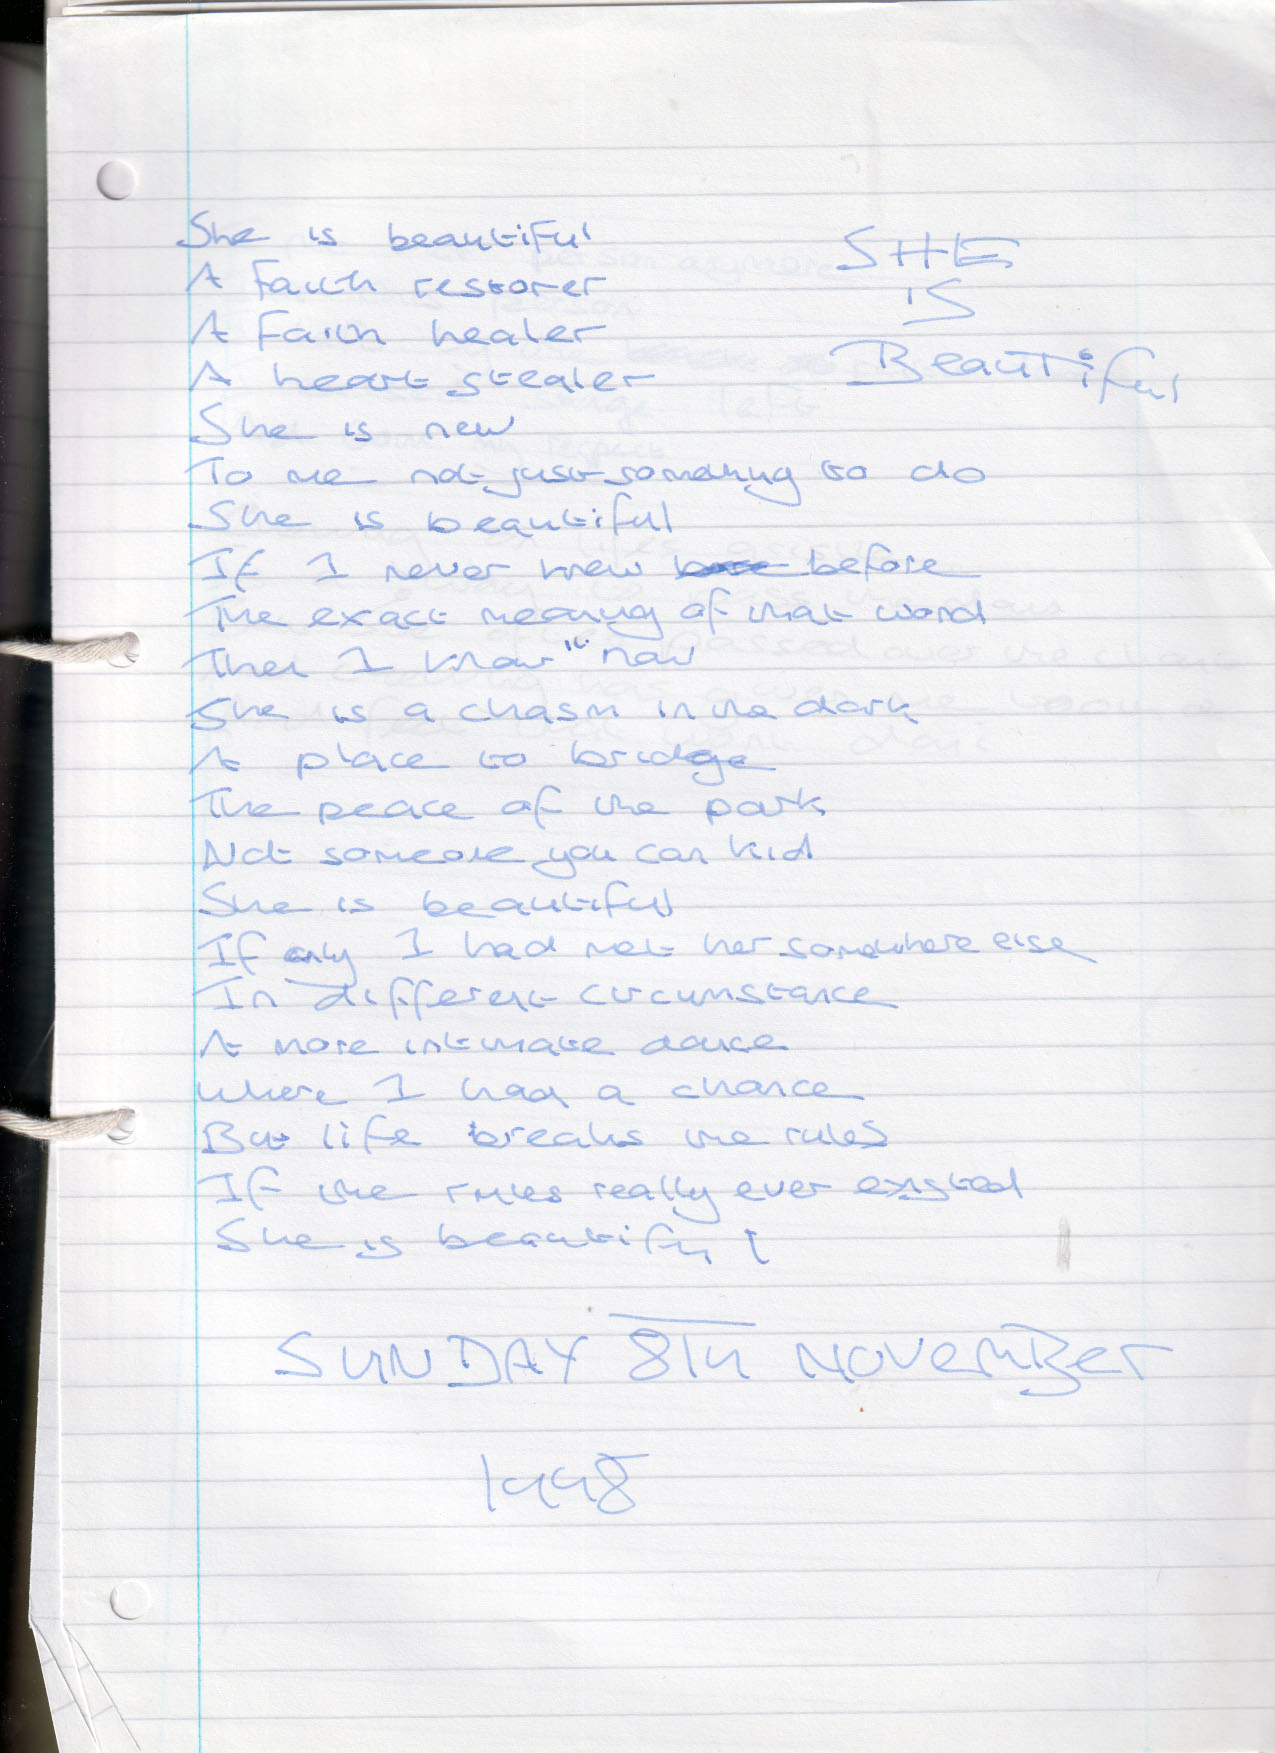 SHE
IS
BEAUTiful
She is beautiful
A Faith restorer
A Faith healer
A heart stealer
She is new
To me not just something to do
She is beautiful
If I never knew before
The exact meaning of that word
Then I know "it" now
She is a chasm in the dark
A place to bridge
The peace of the park
Not someone you can kid
She is beautiful
If only I had met her somewhere else
In different circumstance
A more intimate dance
Where I had a chance
But life breaks the rules
If the rules really ever existed
She is beautiful
SUNDAY 8TH NOVEMBER
1998